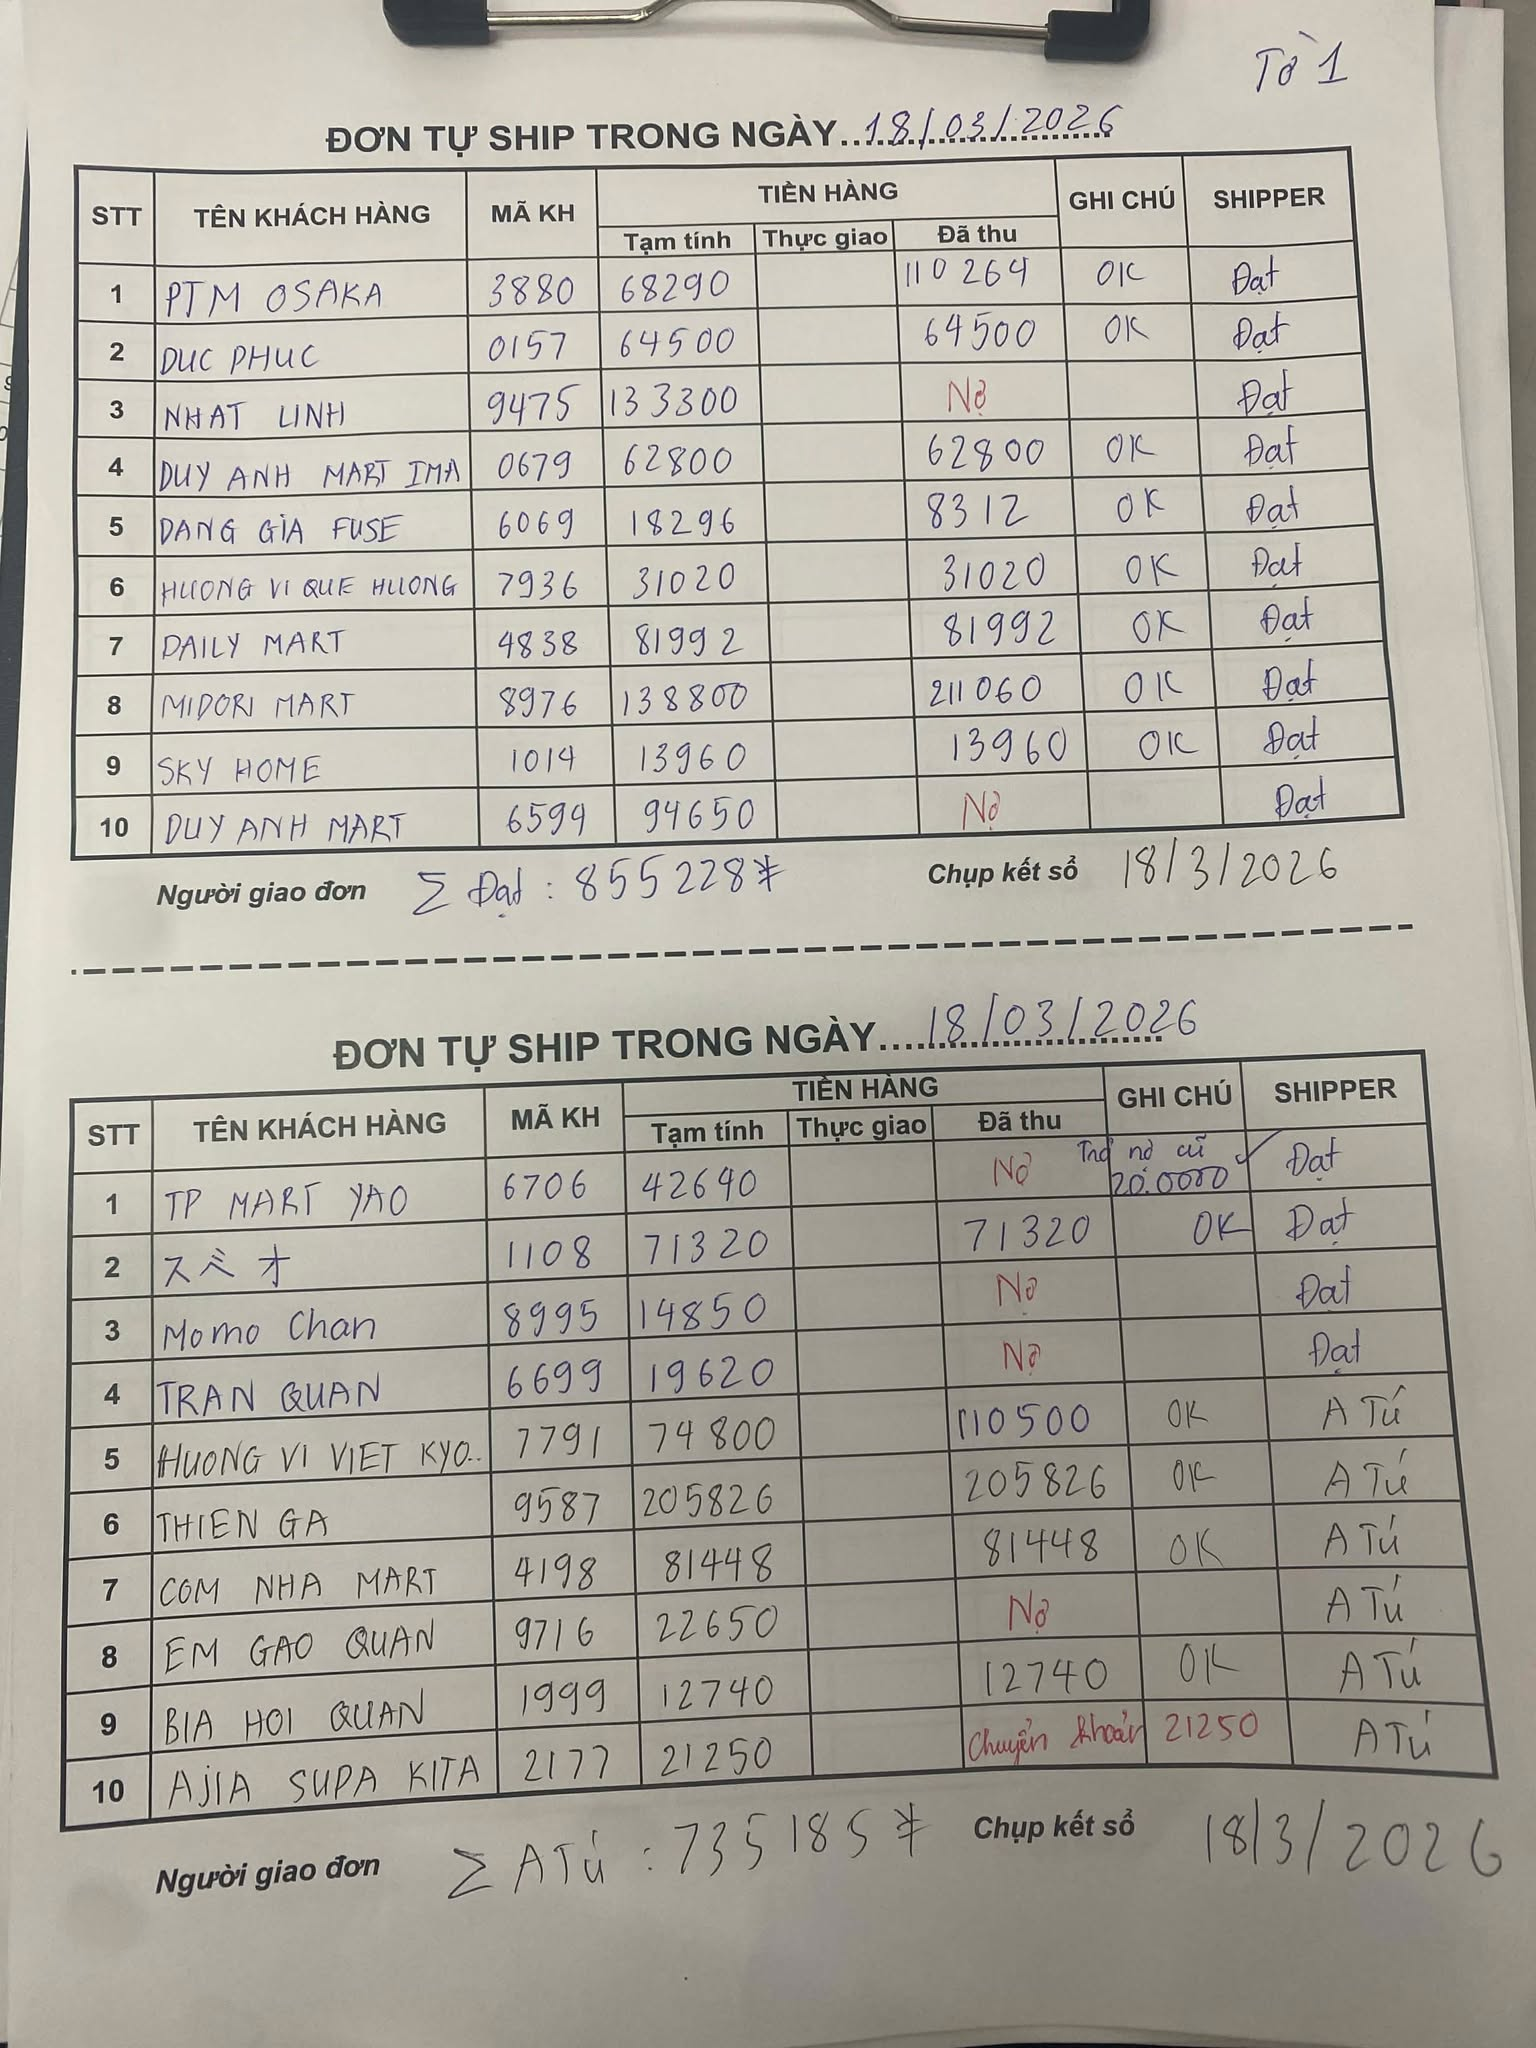 Tờ 1
ĐƠN TỰ SHIP TRONG NGÀY 18/03/2026
STT TÊN KHÁCH HÀNG MÃ KH TIỀN HÀNG GHI CHÚ SHIPPER
Tạm tính Thực giao Đã thu
1 PTM OSAKA 3880 68290 110264 OK Đạt
2 DUC PHUC 0157 64500 64500 OK Đạt
3 NHAT LINH 9475 133300 Nợ Đạt
4 DUY ANH MART IMA 0679 62800 62800 OK Đạt
5 DANG GIA FUSE 6069 18296 8312 OK Đạt
6 HUONG VI QUE HUONG 7936 31020 31020 OK Đạt
7 DAILY MART 4838 81992 81992 OK Đạt
8 MIDORI MART 8976 138800 211060 OK Đạt
9 SKY HOME 1014 13960 13960 OK Đạt
10 DUY ANH MART 6594 94650 Nợ Đạt
Người giao đơn Σ Đạt : 855228* Chụp kết sổ 18/3/2026
ĐƠN TỰ SHIP TRONG NGÀY 18/03/2026
STT TÊN KHÁCH HÀNG MÃ KH TIỀN HÀNG GHI CHÚ SHIPPER
Tạm tính Thực giao Đã thu
1 TP MART YAO 6706 42640 Nợ Trả nợ cũ 20.0000 ✓ Đạt
2 1108 71320 71320 OK Đạt
3 Momo Chan 8995 14850 Nợ Đạt
4 TRAN QUAN 6699 19620 Nợ Đạt
5 HUONG VI VIET KYO.. 7791 74800 110500 OK A Tú
6 THIEN GA 9587 205826 205826 OK A Tú
7 COM NHA MART 4198 81448 81448 OK A Tú
8 EM GAO QUAN 9716 22650 Nợ A Tú
9 BIA HOI QUAN 1999 12740 12740 OK A Tú
10 AJIA SUPA KITA 2177 21250 Chuyển khoản 21250 A Tú
Người giao đơn Σ A Tú : 735185* Chụp kết sổ 18/3/2026